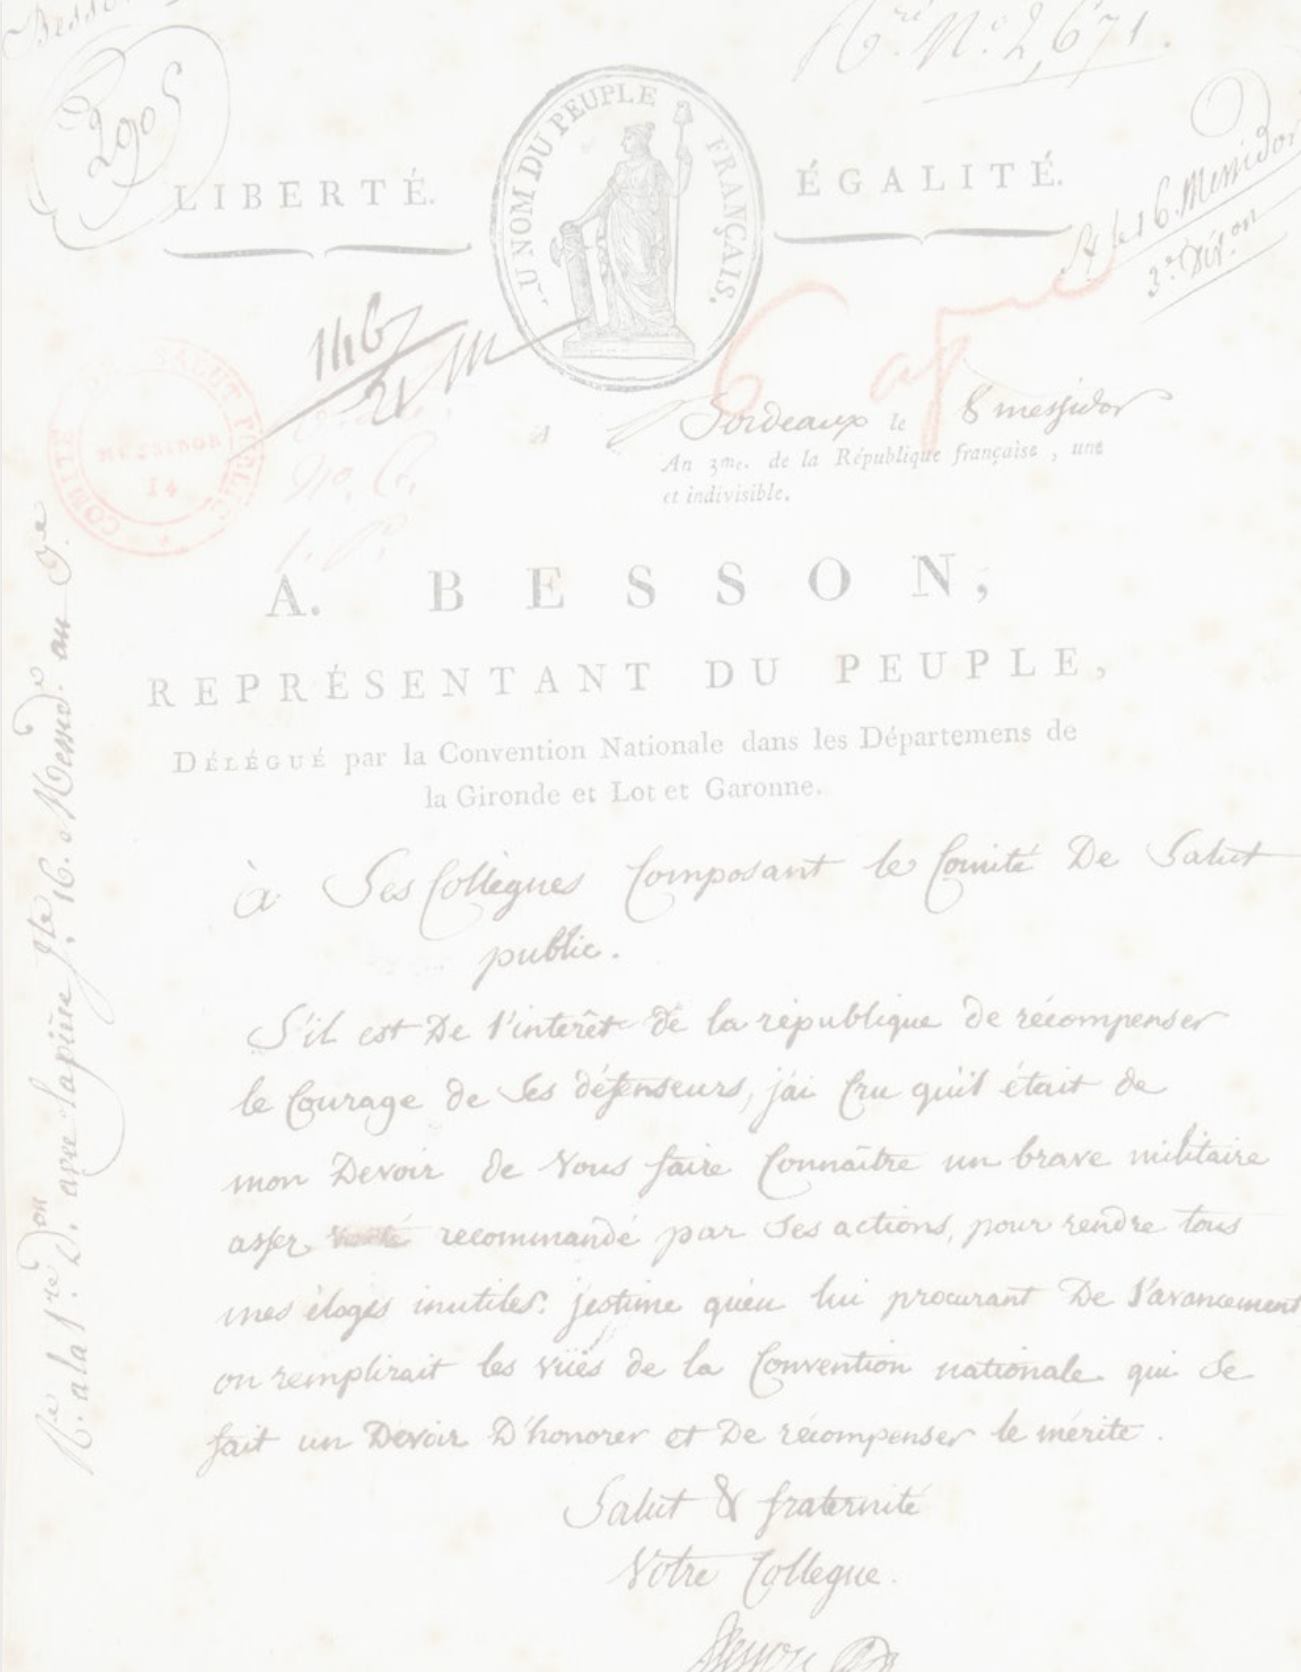 Besson
2905
Nº 2,671.
LIBERTÉ.
AU NOM DU PEUPLE FRANÇAIS.
ÉGALITÉ.
le 16. Messidor
3.e Div.on
1467
21 M
COMITÉ DE SALUT PUBLIC
MESSIDOR
14
A Bordeaux le 8 messidor
An 3me. de la République française, une
et indivisible.
A. BESSON,
REPRÉSENTANT DU PEUPLE,
DÉLÉGUÉ par la Convention Nationale dans les Départemens de
la Gironde et Lot et Garonne.
à Ses Collègues Composant le Comité De Salut
public.
S'il est De l'interêt de la république de récompenser
le Courage de Ses défenseurs, j'ai Cru qu'il était de
mon Devoir de Vous faire Connaître un brave militaire
assez recommandé par Ses actions, pour rendre tous
mes éloges inutiles. j'estime qu'en lui procurant De l'avancement
on remplirait les vüës de la Convention nationale qui Se
fait un Devoir D'honorer et De récompenser le mérite.
Salut & fraternité
Votre Collegue.
Besson
R.é a la 1.re D.on avec la piece J.te 16. Messid.or an 3.e